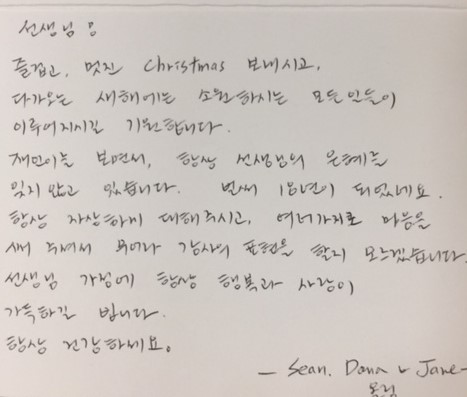 선생님 :
즐겁고, 멋진 Christmas 보내시고,
다가오는 새해에는 소원하시는 모든일들이
이루어지시길 기원합니다.
재민이를 보면서, 항상 선생님의 은혜를
잊지 않고 있습니다. 벌써 10년이 되었네요.
항상 자상하게 대해주시고, 여러가지로 마음을
써 주셔서 뭐라 감사의 표현을 할지 모르겠습니다.
선생님 가정에 항상 행복과 사랑이
가득하길 빕니다.
항상 건강하세요.
- Sean. Dana & Jane -
올림